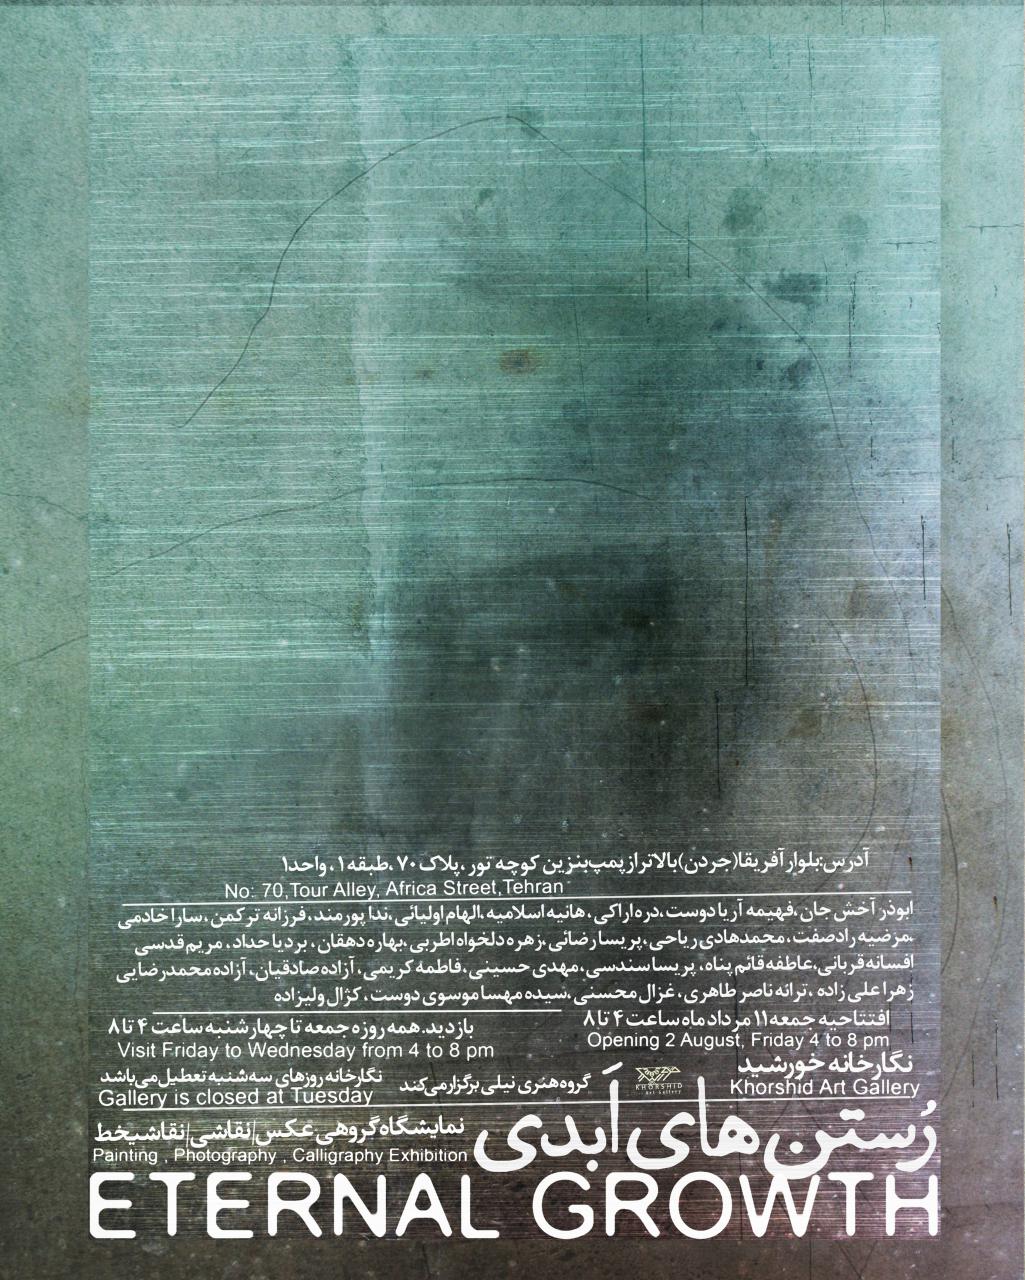 آدرس:بلوار آفریقا(جردن)بالاتر از پمپ‌بنزین کوچه تور ،پلاک ۷۰ ،طبقه ۱ ، واحد۱
No: 70,Tour Alley, Africa Street,Tehran
ابوذر آخش جان ،فهیمه آریا دوست، دره اراکی ، هانیه اسلامیه ،الهام اولیائی ،ندا پورمند، فرزانه ترکمن ،سارا خادمی
،مرضیه رادصفت، محمدهادی ریاحی، پریسا رضائی ،زهره دلخواه اطربی ،بهاره دهقان ، بردیا حداد، مریم قدسی
افسانه قربانی ،عاطفه قائم پناه، پریسا سندسی ،مهدی حسینی ،فاطمه کریمی ، آزاده صادقیان، آزاده محمدرضایی
زهرا علی زاده ،ترانه ناصر طاهری، غزال محسنی ،سیده مهسا موسوی دوست، کژال ولیزاده
افتتاحیه جمعه ۱۱ مرداد ماه ساعت ۴ تا ۸
Opening 2 August, Friday 4 to 8 pm
بازدید.همه روزه جمعه تا چهارشنبه ساعت ۴ تا ۸
Visit Friday to Wednesday from 4 to 8 pm
نگارخانه خورشید
Khorshid Art Gallery
KHORSHID
Art Gallery
گروه هنری نیلی برگزار می‌کند
نگارخانه روزهای سه‌شنبه تعطیل می‌باشد
Gallery is closed at Tuesday
رُستن های اَبدی
نمایشگاه گروهی عکس|نقاشی|نقاشیخط
Painting , Photography , Calligraphy Exhibition
ETERNAL GROWTH